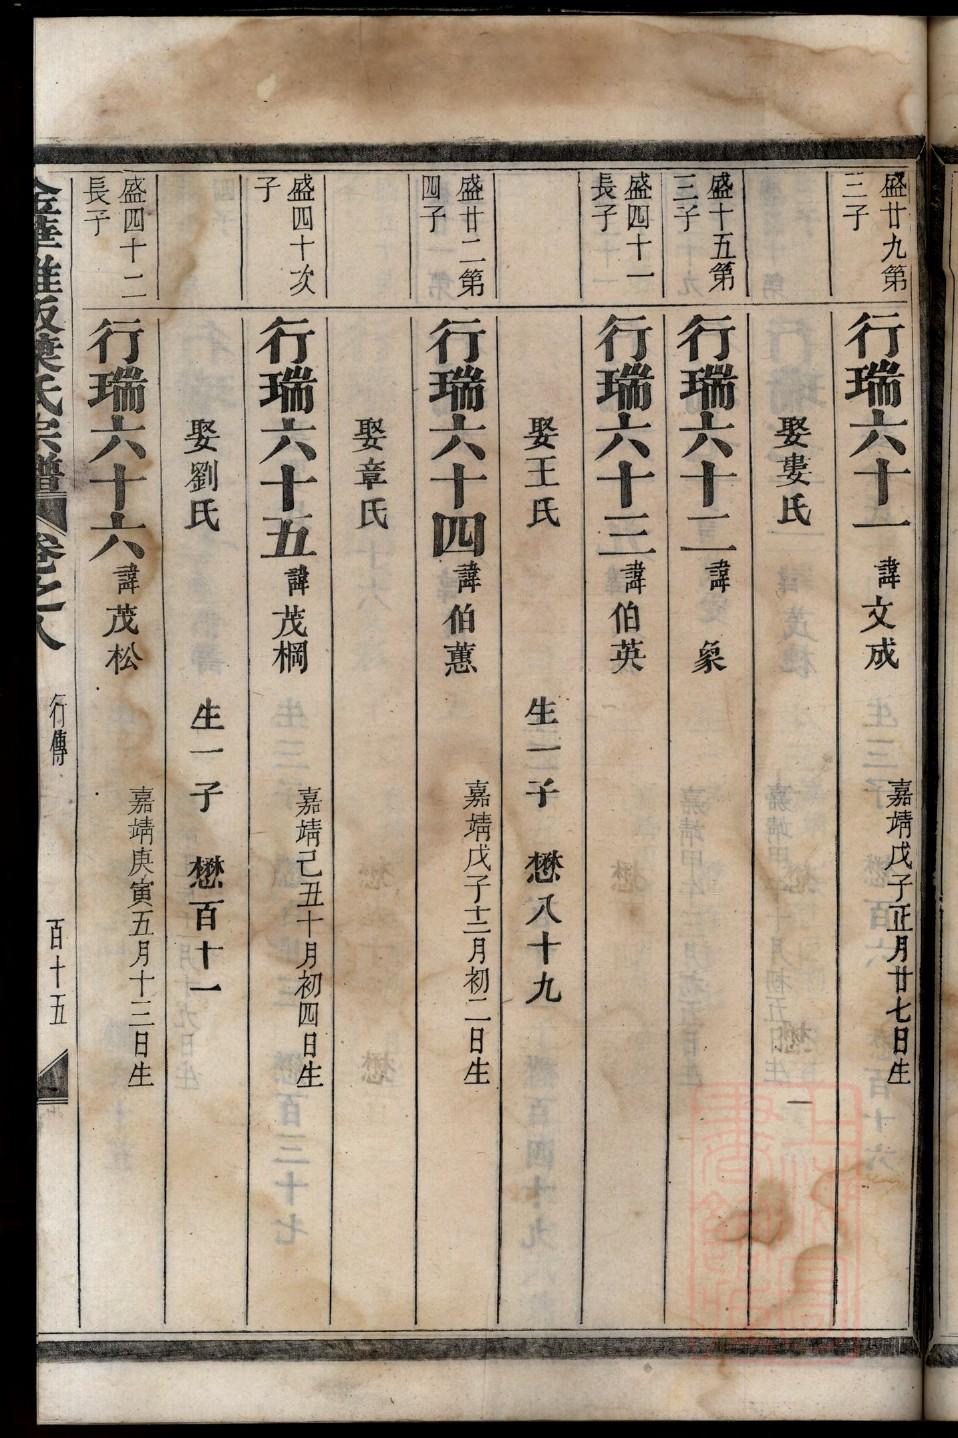 盛廿九第
三子
行瑞六十一 諱文成 嘉靖戊子正月廿七日生
娶婁氏
盛十五第
三子
行瑞六十二 諱 象
盛四十一
長子
行瑞六十三 諱伯英
娶王氏 生一子 懋八十九
盛廿二第
四子
行瑞六十四 諱伯蕙 嘉靖戊子十二月初二日生
娶章氏
盛四十次
子
行瑞六十五 諱茂棡 嘉靖己丑十月初四日生
娶劉氏 生一子 懋百十一
盛四十二
長子
行瑞六十六 諱茂松 嘉靖庚寅五月十三日生
葉氏宗譜 卷之八 行傳 百十五